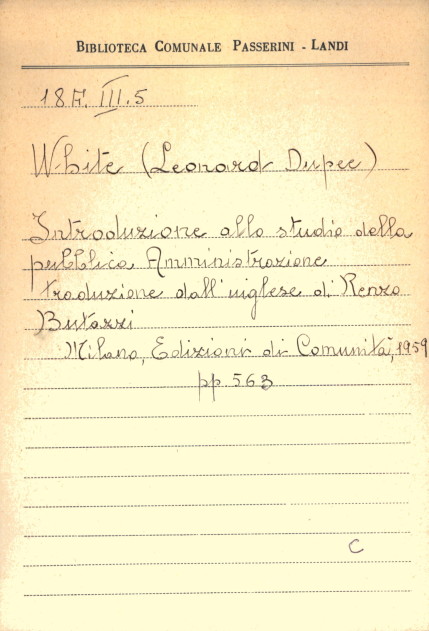 BIBLIOTECA COMUNALE PASSERINI - LANDI
18F. III. 5
White (Leonard Dupee)
Introduzione allo studio della
pubblica Amministrazione
traduzione dall'inglese di Renzo
Butazzi
Milano, Edizioni di Comunità, 1959
pp 563
C